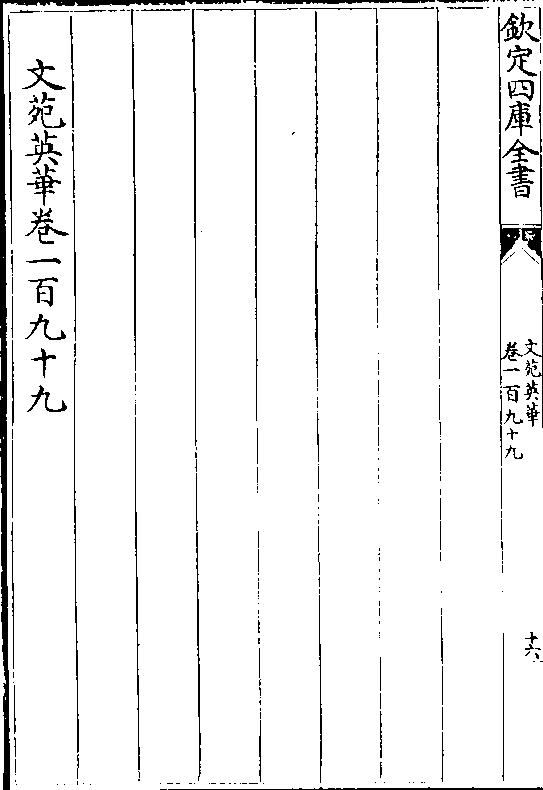 欽定四庫全書
文苑英華
卷一百九十九
十六
文苑英華卷一百九十九